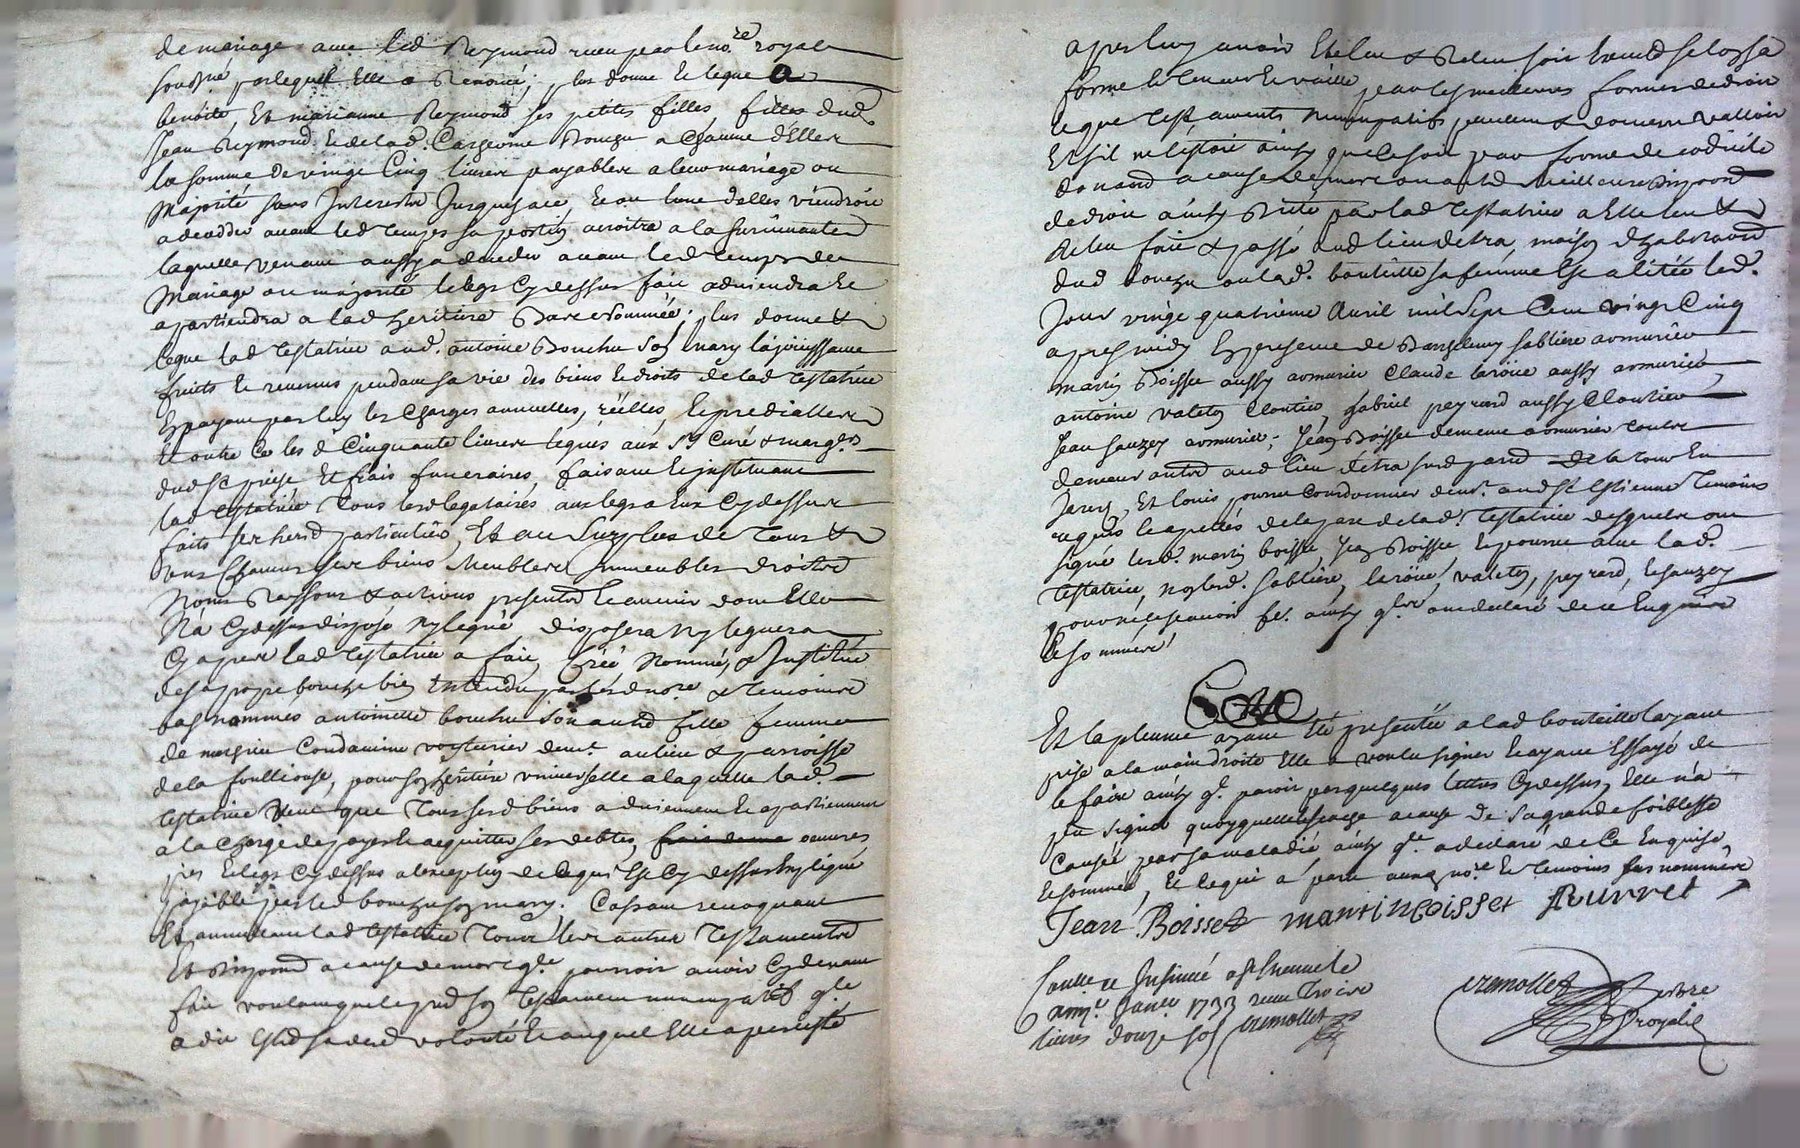 de mariage avec led Reymond receu par le no.re royal
soub.né par lequel Elle a Renoncé; plus donne Et legue a
benoite, Et marianne Reymond ses petites filles, filles dud
Jean Reymond Et de lad. Bouchu a Chacune d'Elles
la somme de vingt Cinq livres payables a leur mariage ou
majorité sans Interestz Jusques a ce, Et ou lune delles viendroit
a decedder avant led temps sa portion acroitra a la survivante
laquelle venant aussy a decedder avant led temps de
Mariage ou majorité le legs Cy dessus fait adviendra Et
apartiendra a lad heritiere Bas nommée. plus donne &
legue lad testatrice aud. antoine Bouchu son mary la jouissance
fruits Et revenus pendant sa vie des biens Et droits de lad testatrice
En payant par luy les Charges annuelles, réelles, Et prediallles
Et outre Ce les d Cinquante livres legués aux Srs Curé & marg.rs
dud St priest Et frais funeraires, faisant Et instituant
lad testatrice tous lesd legataires aux legs a Eux Cy dessus
faits ses herd particuliers, Et au Surplus de tous &
uns Chacuns ses biens Meubles Immeubles droits
Noms Raisons & actions presents Et avenir dont Elle
N'a Cy dessus disposé ny legué disposera ny leguera
Cy apres lad testatrice a fait, Créé Nommé, & Institué
de sa propre bouche bien Entendu par led no.re & temoins
bas nommés antoinette bouchu son autre fille femme
de Condamine voiturier dem.t au lieu & parroisse
de la foulliouse, pour son heritiere universelle a laquelle lad.
testatrice Veut que tous sesd biens adviennent Et apartiennent
a la Charge de payer Et acquitter ses debtes, oeuvres
pies Et legs Cy dessus a lexception de Ce qui Est Cy dessus Expliqué
payable par led bouchu son mary. Cassant revoquant
Et annullant lad testatrice tous ses autres testaments
Et disposions a cause de mort q.le pourroit avoir Cy devant
fait voulant que le present son testament nuncupatif q.le
a dit Estre sa derd volonté Et auquel Elle a persisté
apres luy avoir Eté leu & Releu soit sa
forme Et teneur Et vaille par les meilleures formes de droit
que testaments nuncupatifs peuvent & doivent valloir
Et sil ne l'estoit ainsy que Ce soit par forme de codicile
donaon a cause de mort ou autre meilleure disposion
de droit ainsy dicté par lad testatrice a Elle leu &
Releu fait & passé aud lieu detra, maison dhabitaon
dud bouchu ou lad. bouteille sa femme Est alitée led.
Jour vingt quatrieme Avril mil Sept Cent vingt Cinq
apres midy En presence de Barthelemy sabliere armurier
martin Boisset aussy armurier Claude laroüe aussy armurier
antoine valeton Cloutier, Gabriel peyrard aussy Cloutier
Jean Sauzey armurier, Jean Boisset demeure armurier tous
demeurantz aud lieu detra susd parod de la tour En
Jarez, Et louis pourret Cordonnier dem.t aud St Estienne temoins
requis Et apellés de la part de lad. testatrice desquels ont
signé lesd. martin boisset, Jean Boisset Et pourret avec lad.
testatrice, non lesd. sabliere, laroüe, valeton, peyrard, Et sauzey
pour ne le scavoir f.e ainsy q.ls ont declaré de ce Enquis
Et sommés
Et la plume ayant Eté presentée a lad bouteille layant
prise a la main droite Elle a voulu signer Et ayant Essayé de
le faire ainsy q.l paroit par quelques lettres Cy dessus, Elle n'a
pu signer quoyquelle scache a cause de sa grande foiblesse
Causée par sa maladie ainsy q.le a declaré de Ce Enquise
Et sommée, Et Ce qui a paru aud no.re Et temoins sus nommés
Jean Boisset martin boisset Pourret
Controllé Insinué a St Chamond le
Janvier 1733 receu trois
livres douze sols cremollet
cremollet no.re
royal